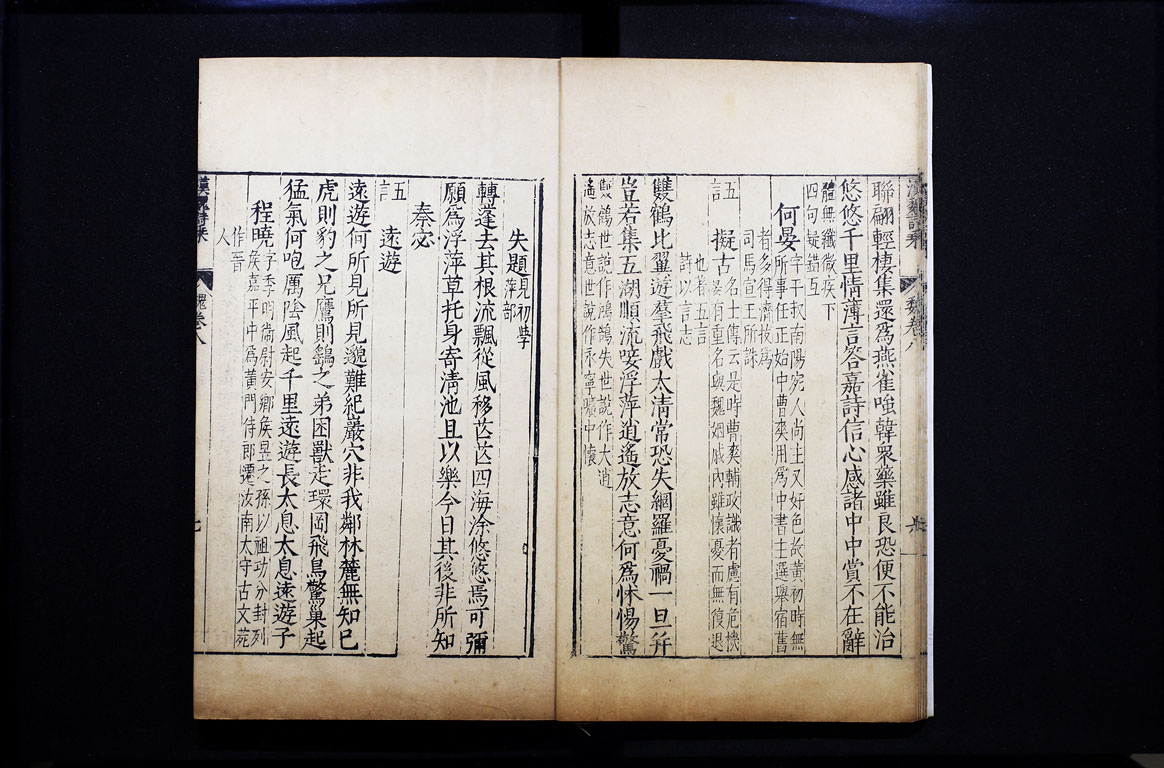 聯翩輕棲集還爲燕雀嗤韓衆藥雖良恐便不能治
悠悠千里情薄言答嘉詩信心感諸中中賞不在辭
體無纖微疾下
四句疑錯互
何晏字平叔南陽宛人尚主又好色故黃初時無
所事任正始中曹爽用爲中書主選舉宿舊
者多得濟拔爲
司馬宣王所誅
五言
擬古名士傳云是時曹爽輔政識者慮有危機
晏有重名與魏姻戚內雖懷憂而無復退
也著五言
詩以言志
雙鶴比翼遊羣飛戲太清常恐失網羅憂禍一旦并
豈若集五湖順流唼浮萍逍遙放志意何爲怵惕驚
雙鶴世說作鴻鵠失世說作大逍
遙放志意世說作永寧曠中懷
失題見初學
萍部
轉蓬去其根流飄從風移芒芒四海涂悠悠焉可彌
願爲浮萍草托身寄清池且以樂今日其後非所知
秦宓
五言
遠遊
遠遊何所見所見邈難紀巖穴非我鄰林麓無知己
虎則豹之兄鷹則鷂之弟困獸走環岡飛鳥驚巢起
猛氣何咆厲陰風起千里遠遊長太息太息遠遊子
程曉字季明衞尉安鄉侯昱之孫以祖功分封列
侯嘉平中爲黃門侍郎遷汝南太守古文苑
作晉
人
魏卷八
七
魏卷八